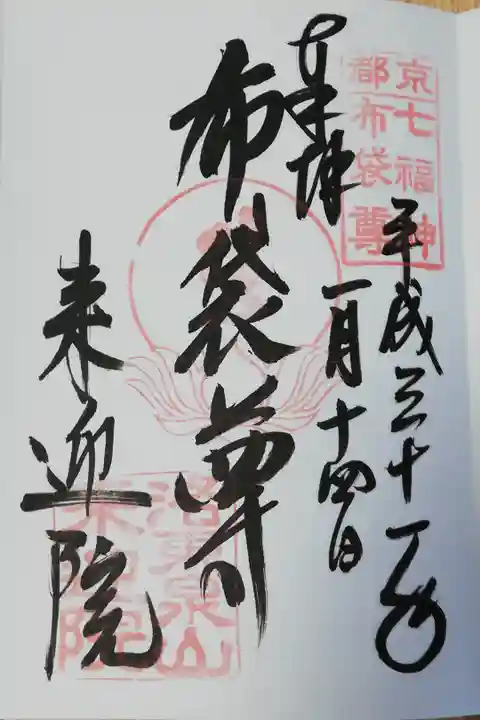 京都七福神
布袋尊
平成三十一年
一月十四日
奉拝
布袋尊
来迎院
洛東泉山
来迎院